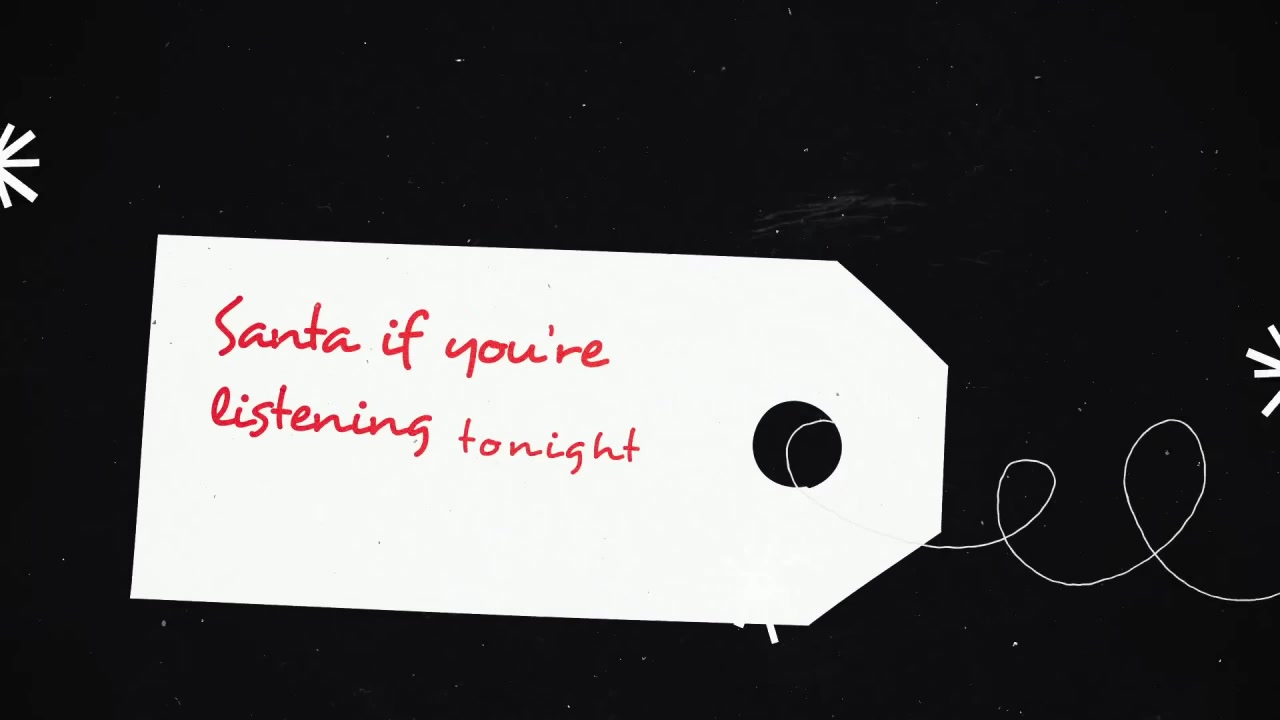 Santa if you're
listening tonight